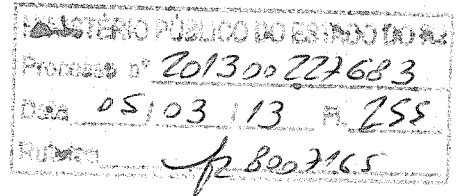 MINISTÉRIO PÚBLICO DO ESTADO DO
Processo nº 201300227683
Data 05/03/13 Fl. 255
Rubrica